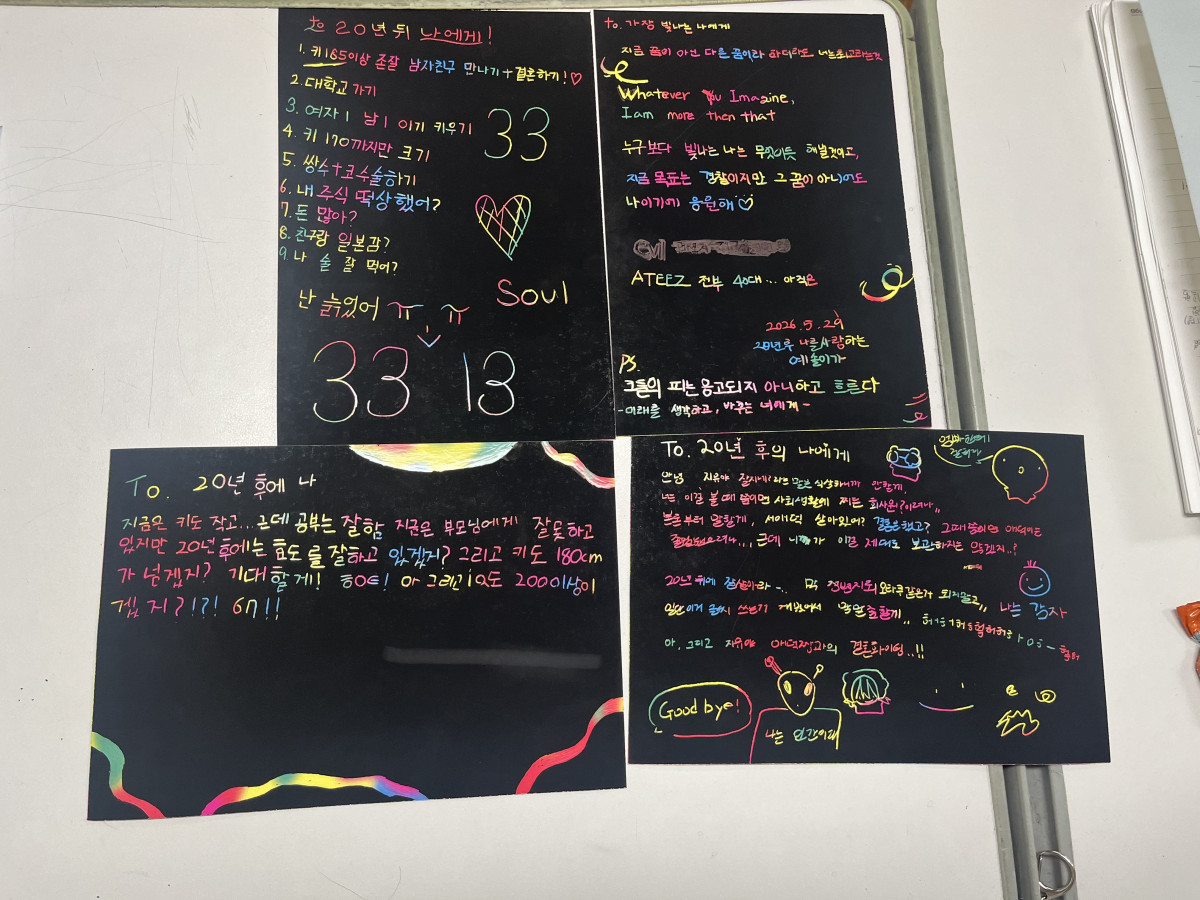 to 20년 뒤 나에게!
1. 키 185이상 존잘 남자친구 만나기+결혼하기!♡
2. 대학교 가기
3. 여자 1 남 1 아기 키우기
4. 키 170까지만 크기
5. 쌍수+코수술하기
6. 내 주식 떡상했어?
7. 돈 많아?
8. 친구랑 일본감?
9. 나 술 잘 먹어?
33
난 늙었어 ㅠ ㅠ
Soul
33 13
to. 가장 빛나는 나에게
지금 꿈이 아닌 다른 꿈이라 하더라도 너는 최고라는것
Whatever You Imagine,
I am more then that
누구보다 빛나는 나는 무엇이듯 해낼것이고,
지금 목표는 경찰이지만 그 꿈이 아니어도
나이기에 응원해♡
ATEEZ 전부 40대... 아직은
2026.5.29
20년후 나를 사랑하는
예솔이가
PS.
그들의 피는 응고되지 아니하고 흐른다
-미래를 생각하고, 바꾸는 너에게-
To. 20년 후에 나
지금은 키도 작고... 근데 공부는 잘함 지금은 부모님에게 잘못하고
있지만 20년 후에는 효도를 잘하고 있겠지? 그리고 키도 180cm
가 넘겠지? 기대할게! 아 그리고 IQ도 200이상이
겠지?!?! 67!!
To. 20년 후의 나에게
안녕 지유야 잘지내? 라는 말은 식상하니까 안할게.
너는 이걸 볼 때 쯤이면 사회생활에 찌든 회사원?이려나,,
본론부터 말할게, 서애덕 살아있어? 결혼은 했고? 그때쯤이면
근데 니가 이걸 제대로 보관하지는 않겠지..?
20년 뒤에 잘살아라-.. 되지말고,, 나는 감자
일단 이거 글씨 쓰는기
아, 그리고 지유야 결혼 화이팅..!!
Good bye!
나는 인간이다